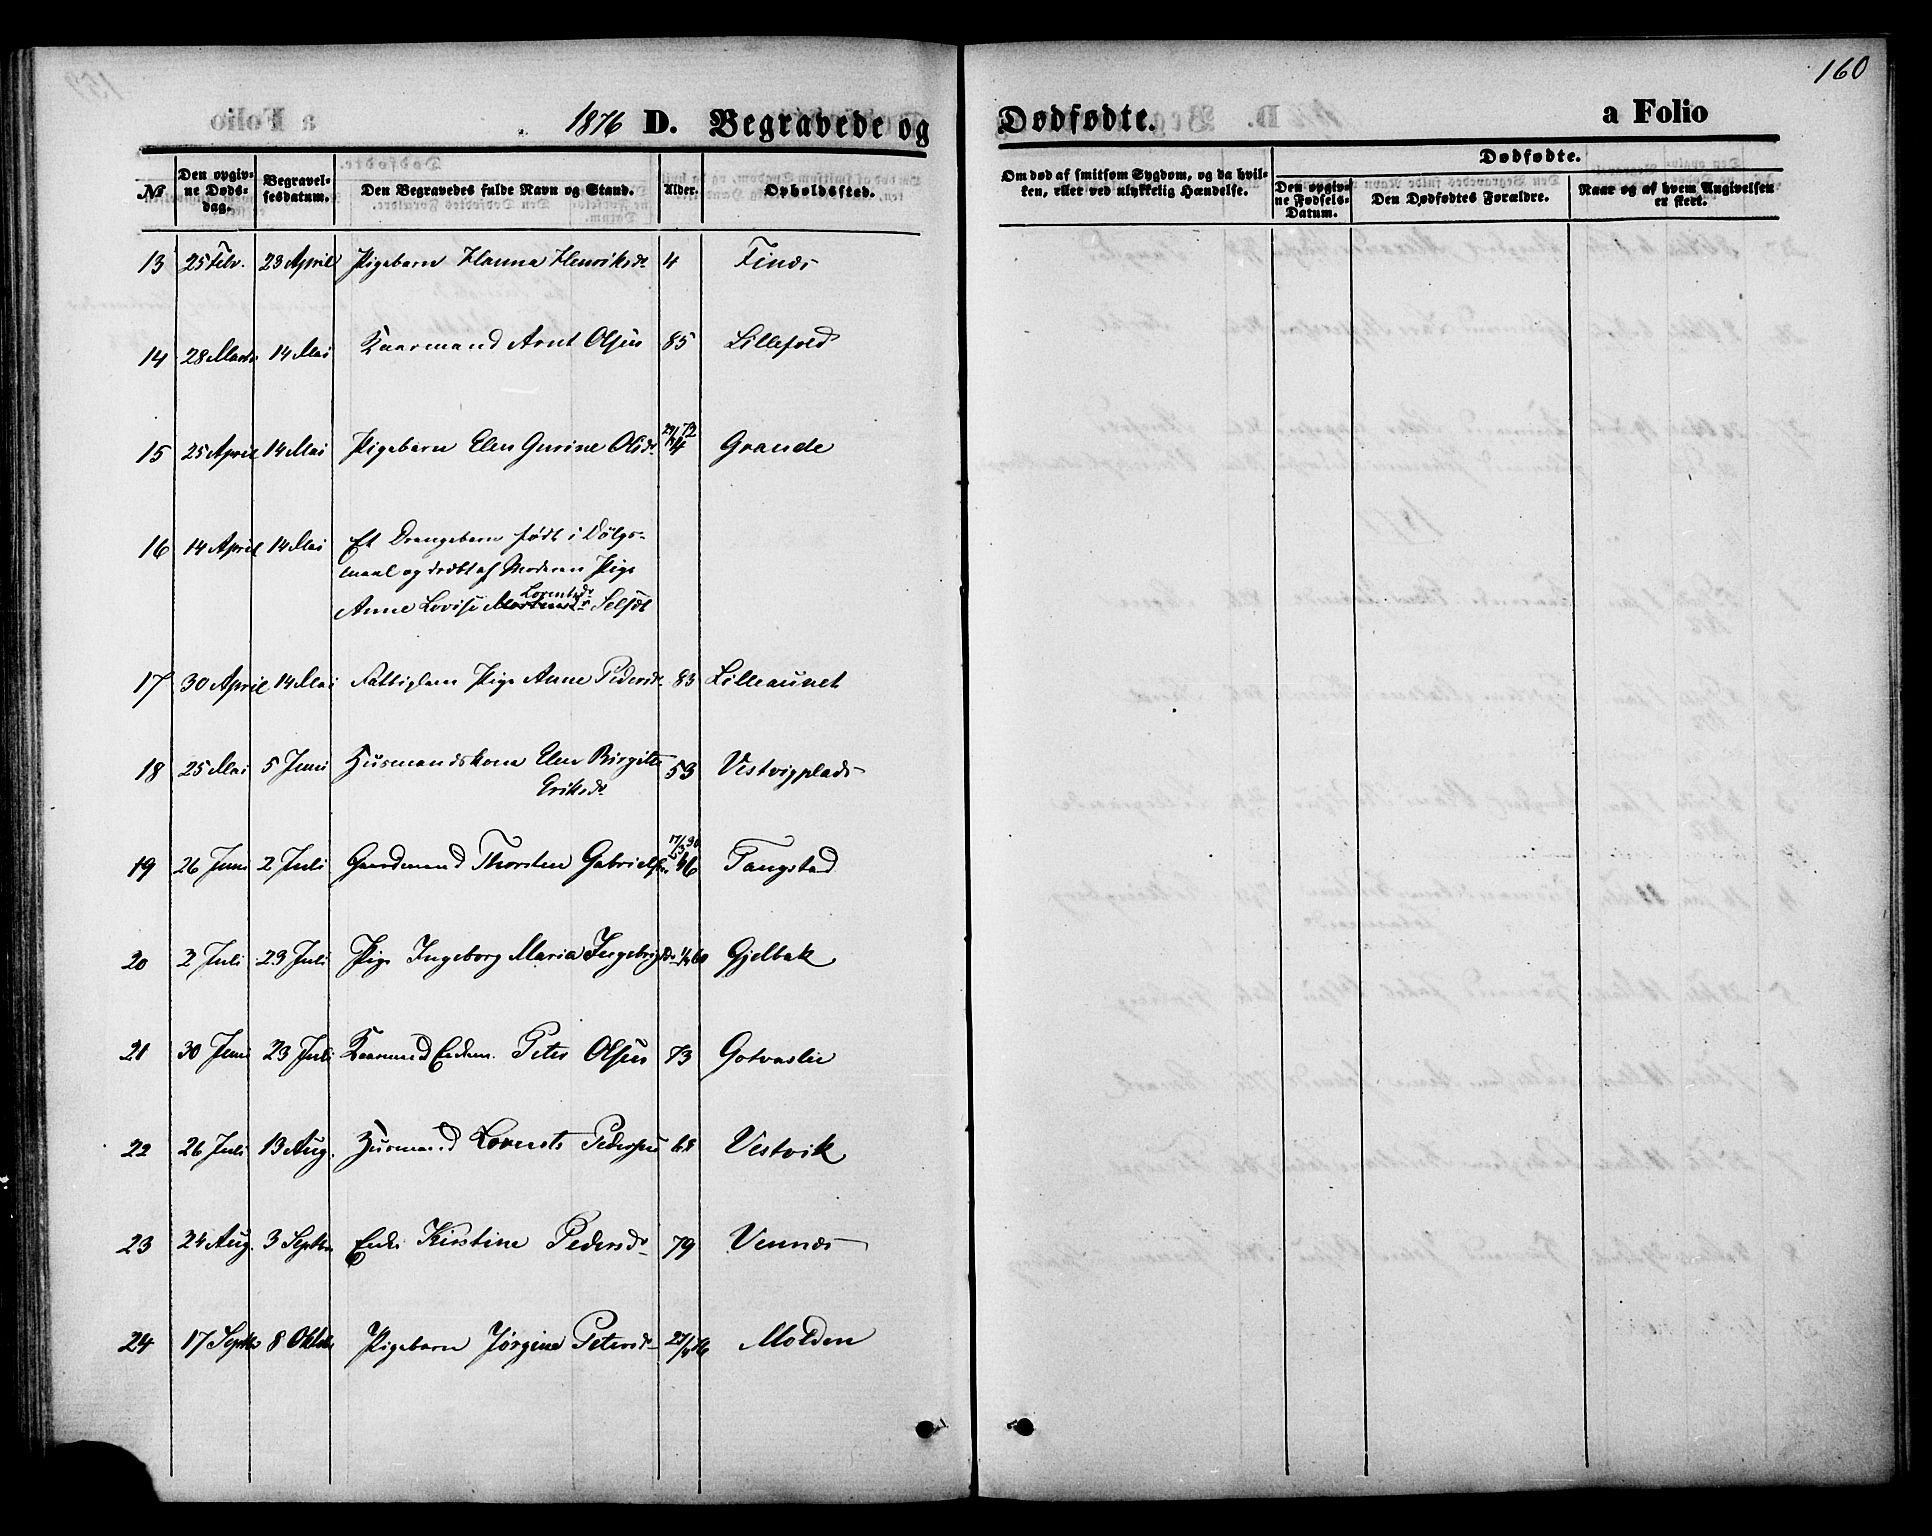 160
1876 D. Begravede og Dødfødte. a Folio
No
Den opgivne Dødsdag.
Begravelsesdatum.
Den Begravedes fulde Navn og Stand.
Alder.
Opholdssted.
Om død af smitsom Sygdom, og da hvilken, eller ved ulykkelig Hændelse.
Dødfødte.
Den opgivne Fødsels-Datum.
Den Dødfødtes Forældre.
Naar og af hvem Angivelsen er skeet.
13 25 Febr. 23 April Pigebarn Hanna Henriksdr 4 Finæs
14 28 Marts 14 Mai Kaarmand Arnt Olsen 85 Lillefold
15 25 April 14 Mai Pigebarn Elen Gurine Olsdr 4 Grande
16 14 April 14 Mai Et Drengebarn født i Dölgs-
maal og dræbt af Moderen Pige
Lorentsdr
Anne Lovise Mortensdr Selset
17 30 April 14 Mai Fattiglem Pige Anne Pedersdr 83 Lilleaunet
18 25 Mai 5 Juni Husmandskone Elen Birgitte 53 Vestvigplads
Eriksdr
19 26 Juni 2 Juli Gaardmand Thorsten Gabrielsen 46 Tangstad
20 2 Juli 23 Juli Pige Ingeborg Maria Ingebrigtsdr Gjelbak
21 30 Juni 23 Juli Kaarmand Enkem. Peter Olsen 73 Gotvaslie
22 26 Juli 13 Aug. Husmand Lorents Pedersen 68 Vestvik
23 24 Aug. 3 Septbr Enke Kirstine Pedersdr 79 Vennæs
24 17 Septbr 8 Oktbr Pigebarn Jørgine Petersdr Molden